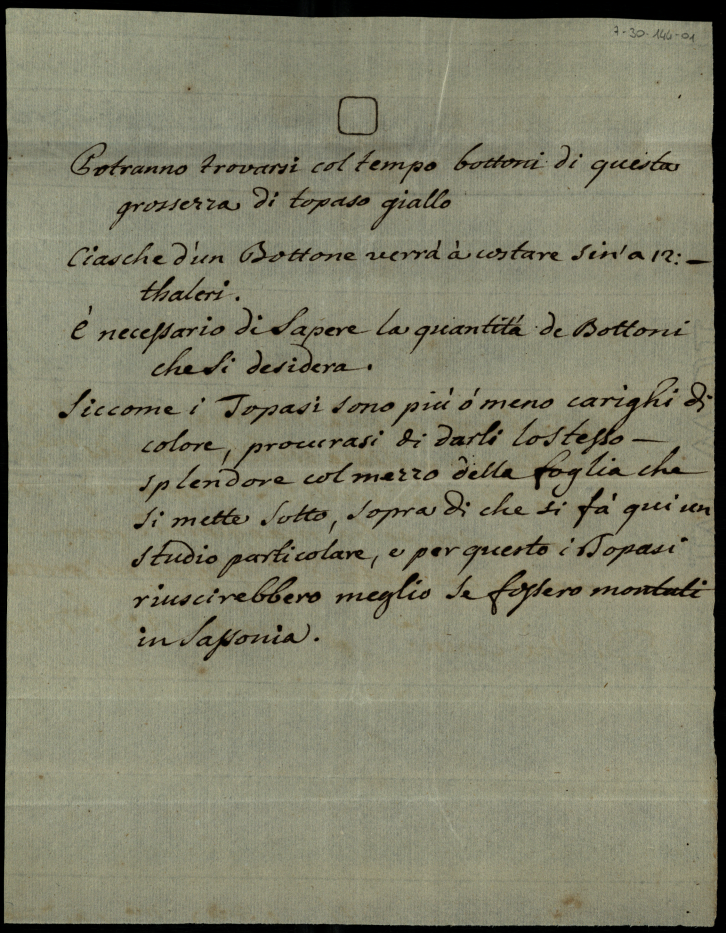 7-30-144-01
Potranno trovarsi col tempo bottoni di questa
grossezza di topaso giallo
Ciasche d'un Bottone verrá à costare sin'a 12: –
thaleri.
é necessario di Sapere la quantitá de Bottoni
che Si desidera.
Siccome i Topasi sono piú ó meno carighi di
colore, procurasi di darli lo stesso –
splendore col mezzo della foglia che
si mette sotto, sopra di che si fá qui un
studio particolare, e per questo i Topasi
riuscirebbero meglio se fossero montati
in Sassonia.